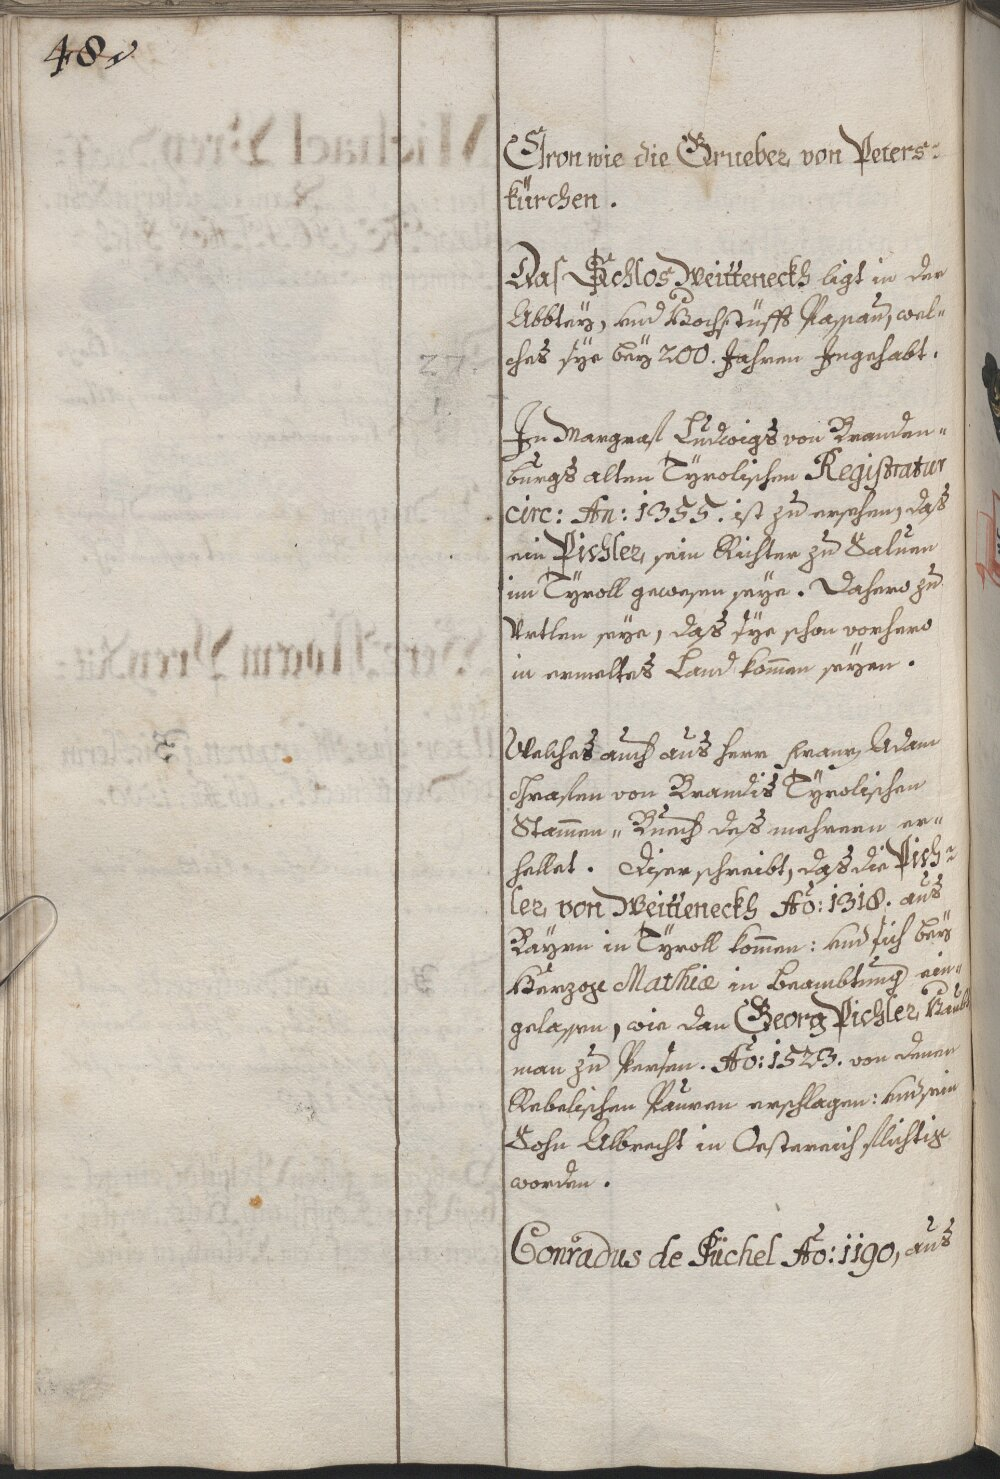 48
Cron wie die Grueber von Peters-
kürchen.
Das Schlos Weitteneckh ligt in der
Abbtey, und Hochstüffs Passau, wel-
ches sye bey 200. Jahren Ingehabt.
In Margraf Ludwigs von Branden-
burgs alten Tyrolischen Registratur
circ: An: 1355. ist zu ersehen, das
ein Pichler, sein Richter zu Saluen
im Tyroll gewesen seye. Dahero zu
Urtlen seye, das sye schon vorhero
in ermeltes Land kommen seyen.
Welches auch aus herr Franz Adam
Grafen von Brandis Tyrolischen
Stammen-Buech des mehrern er-
hellet. Diser schreibt, das die Pich-
ler von Weitteneckh Ao: 1318. aus
Bayrn in Tyroll kommen: und sich bey
Herzog Mathiæ in beambtung ein-
gelassen, wie dan Georg Pichler, Haubt
man zu Persen. Ao: 1523. von denen
Rebelischen Pauren erschlagen: und sein
Sohn Albrecht in Oestereich flichtig
worden.
Conradus de Püchel Ao: 1190, aus